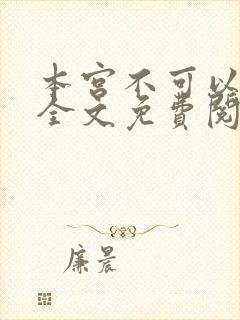 本宫不可以
全文免费阅
廉晨